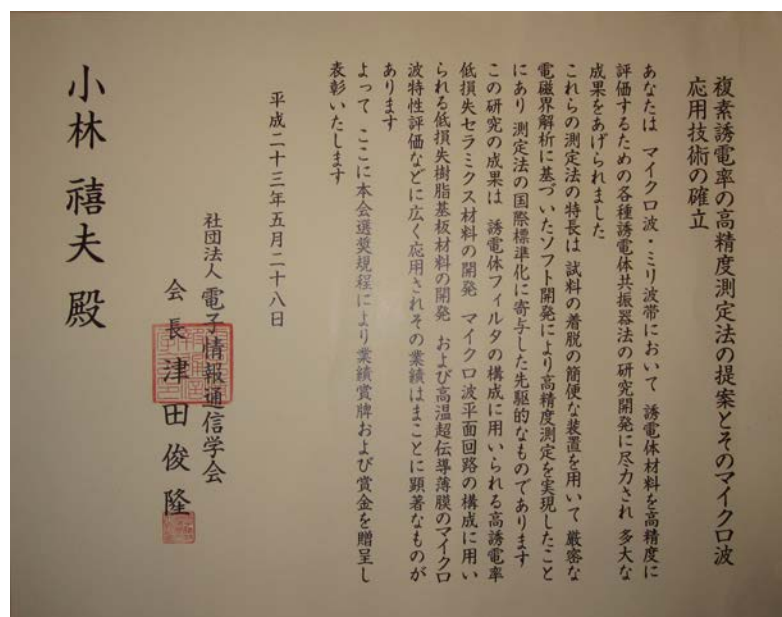 複素誘電率の高精度測定法の提案とそのマイクロ波
応用技術の確立
あなたは マイクロ波・ミリ波帯において 誘電体材料を高精度に
評価するための各種誘電体共振器法の研究開発に尽力され 多大な
成果をあげられました
これらの測定法の特長は 試料の着脱の簡便な装置を用いて 厳密な
電磁界解析に基づいたソフト開発により高精度測定を実現したこと
にあり 測定法の国際標準化に寄与した先駆的なものであります
この研究の成果は 誘電体フィルタの構成に用いられる高誘電率
低損失セラミクス材料の開発 マイクロ波平面回路の構成に用い
られる低損失樹脂基板材料の開発 および高温超伝導薄膜のマイクロ
波特性評価などに広く応用されその業績はまことに顕著なものが
あります
よって ここに本会選奨規程により業績賞牌および賞金を贈呈し
表彰いたします
平成二十三年五月二十八日
社団法人 電子情報通信学会
会長 津田俊隆
小林 禧夫 殿